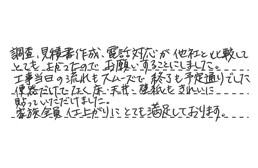 調査、見積書作成、電話対応が他社と比較して
とても よかったので お願いすることにしました。
工事当日の流れもスムーズで、終了も予定通りでした
便器だけでなく床・天井・壁紙もきれいに
貼っていただけました。
家族全員仕上がりにとても満足しております。